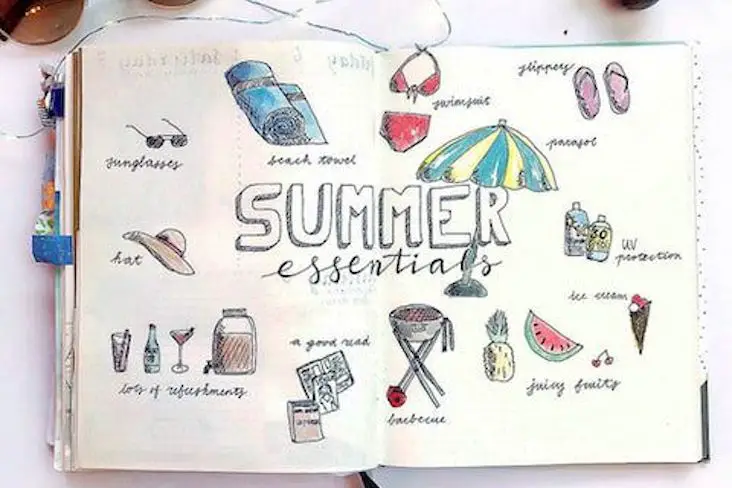 slippers
swimsuit
parasol
sunglasses
beach towel
SUMMER
essentials
hat
UV
protection
ice cream
a good read
SUMMER
lots of refreshments
juicy fruits
barbecue